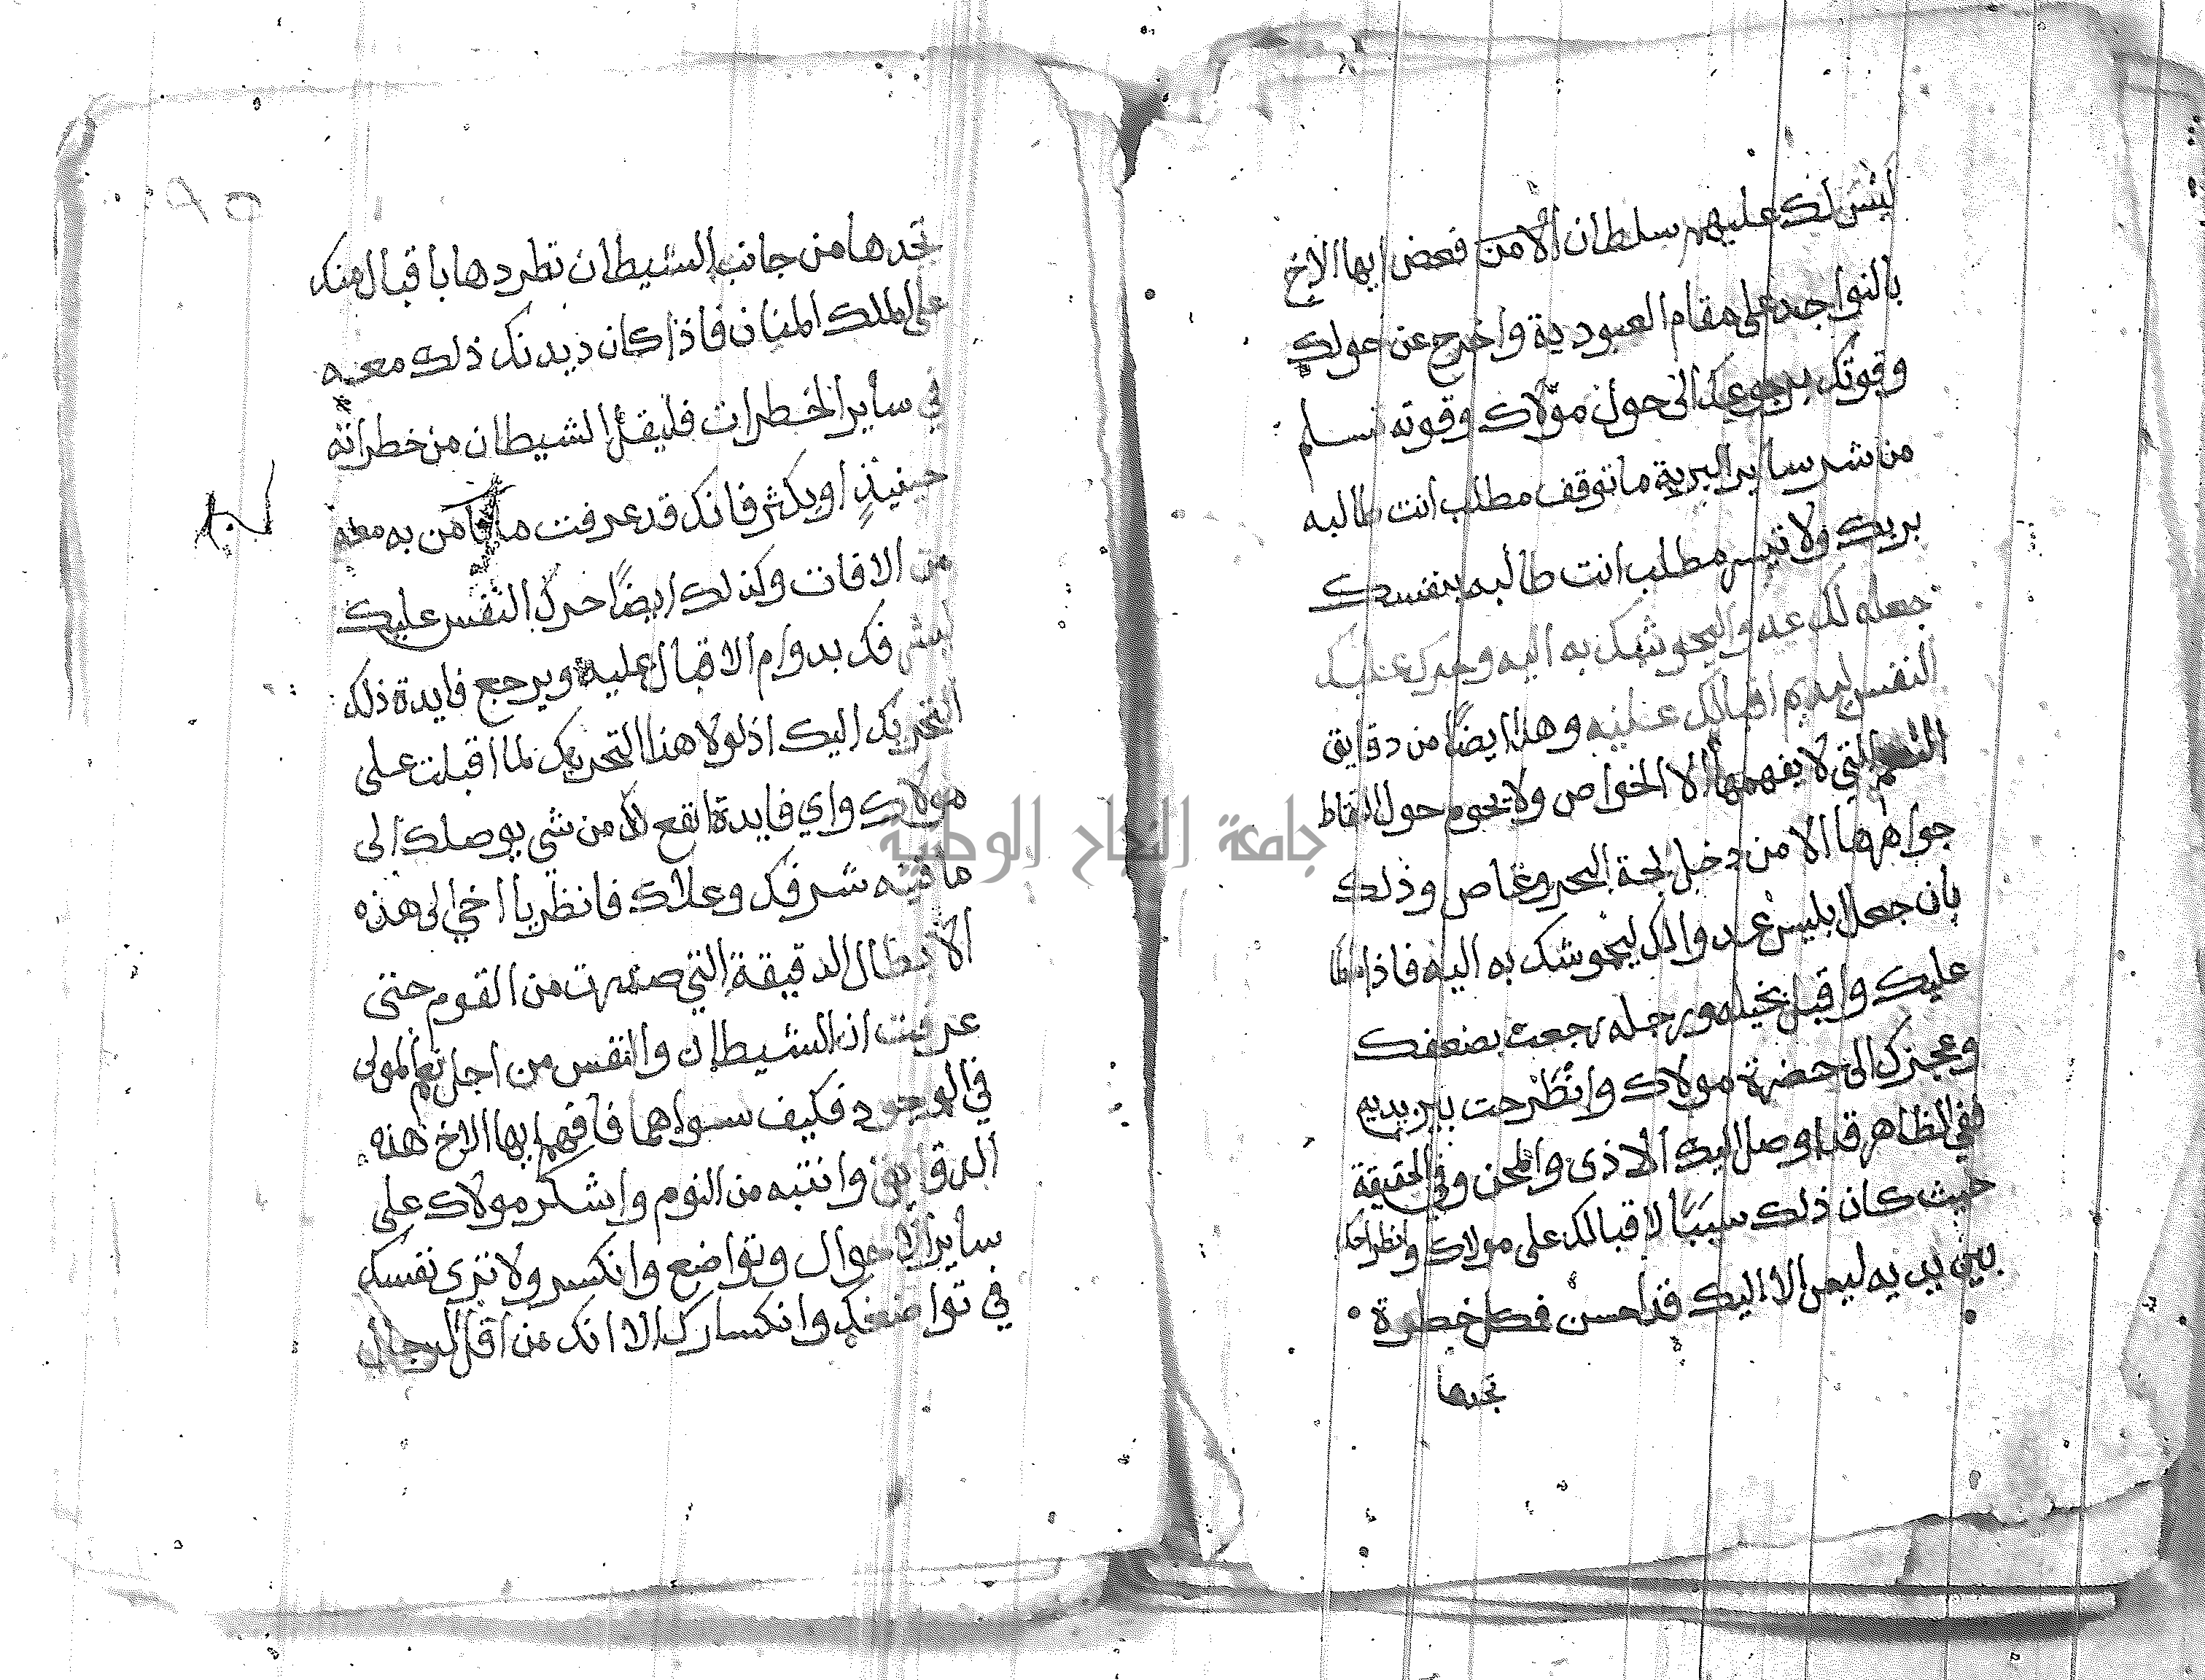 ليس لك عليهم سلطان الامن فعض ايها الاخ
بالنواجد على مقام العبودية واخرج عن حولك
وقوتك برجوعك الى حول مولاك وقوته تسلم
من شر ساير البرية ما توقف مطلب انت طالبه
بربك ولا تيسر مطلب انت طالبه بنفسك
جعله لك عدوا ليحوشك به اليه وحرك عليك
النفس ليدوم اقبالك عليه وهذا ايضًا من دقايق
التي لا يفهمها الا الخواص ولا يحوم حول التقاط
جواهرها الا من دخل لجة البحر وغاص وذلك
بان جعل ابليس عدوا لك ليحوشك به اليه فاذا
عليك واقبل بخيله ورجله رجعت بضعفك
وعجزك الى حضرة مولاك وانطرحت بين يديه
ففي الظاهر قد اوصل اليك الاذى والمحن وفي الحقيقة
حيث كان ذلك سببًا لاقبالك على مولاك وانطراحك
بين يديه ليس الا اليك قد احسن فكل خطرة
تجدها
تجدها من جانب الشيطان تطردها باقبال منك
على الملك المنان فاذا كان ديدنك ذلك معه
في ساير الخطرات فليقل الشيطان من خطراته
حينيذٍ او يكثر فانك قد عرفت ما تامن به معه
من الافات وكذلك ايضًا حرك النفس عليك
ليشرفك بدوام الاقبال عليه ويرجع فايدة ذلك
التحريك اليك اذ لولا هذا التحريك لما اقبلت على
مولاك واي فايدة انفع لك من شي يوصلك الى
ما فيه شرفك وعلاك فانظر يا اخي الى هذه
الانظال الدقيقة التي صدرت من القوم حتى
عرفت ان الشيطان والنفس من اجل نعم المولى
في الوجود فكيف سواهما فافهم ايها الاخ هذه
الدقايق وانتبه من النوم واشكر مولاك على
ساير الاحوال وتواضع وانكسر ولا ترى نفسك
في تواضعك وانكسارك الا انك من اقل الرجال